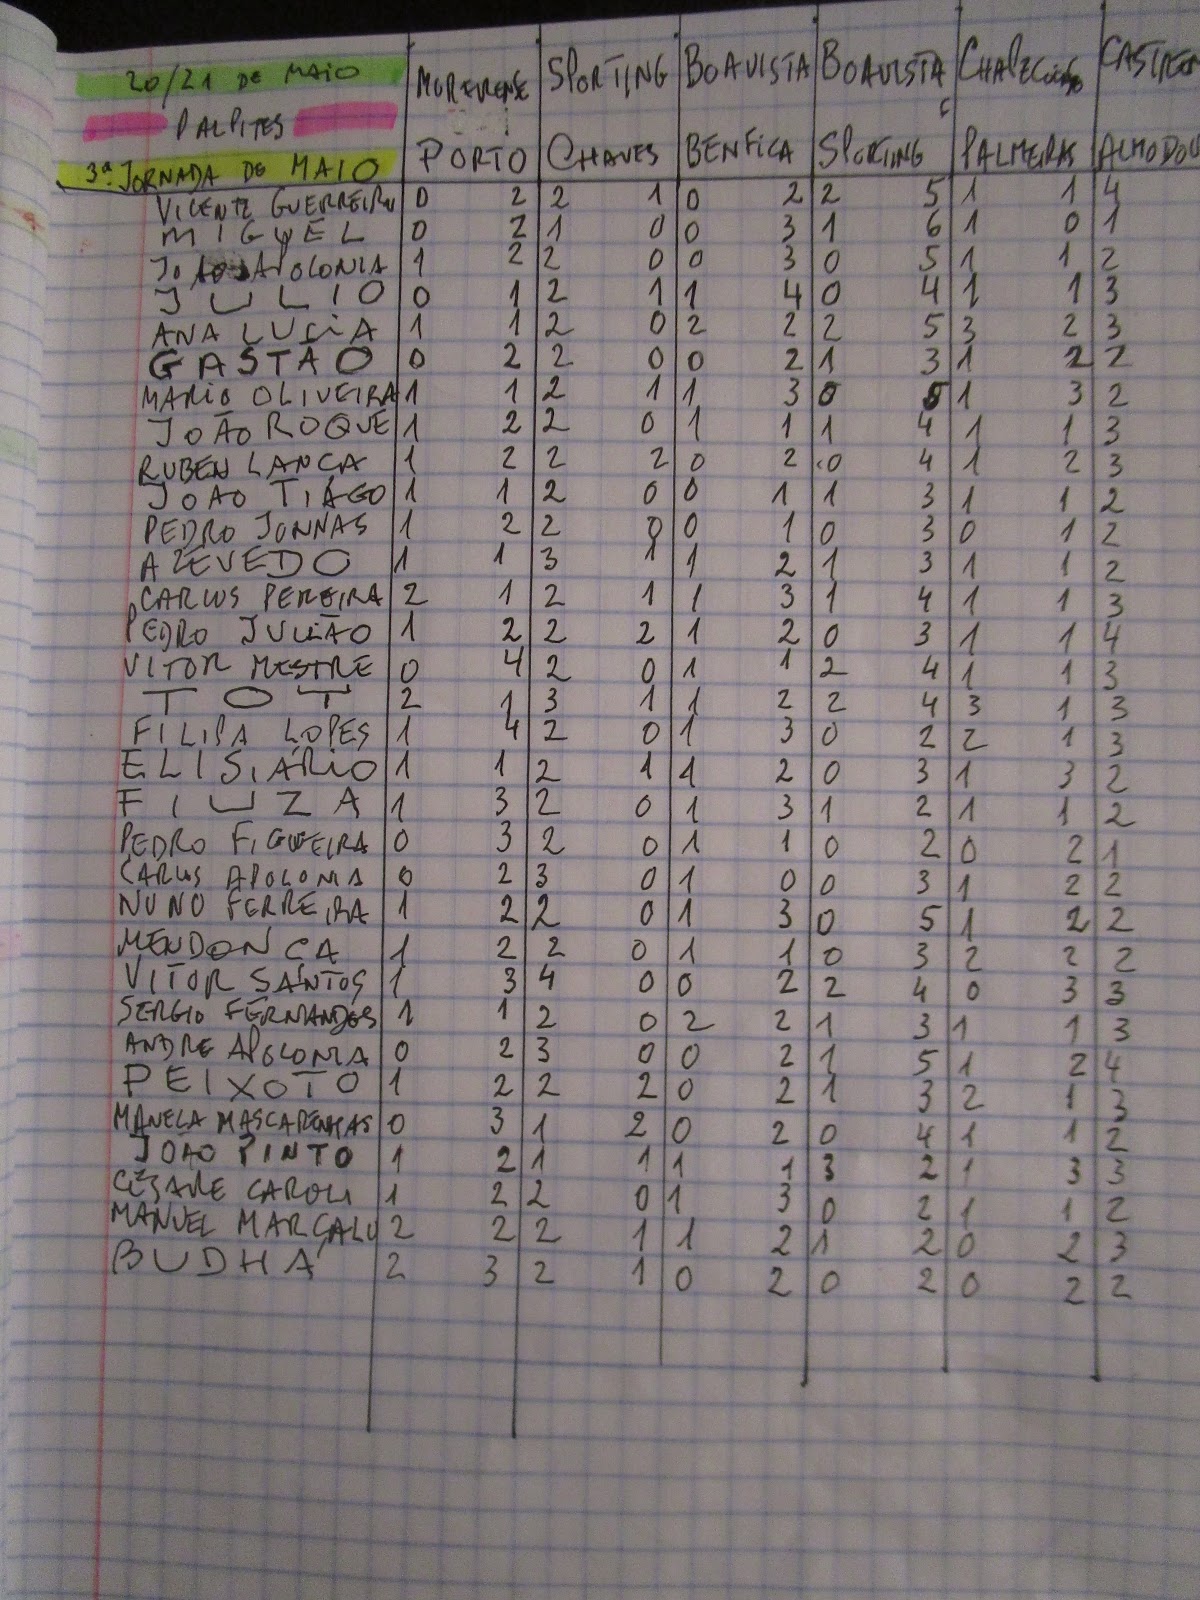 20/21 DE MAIO MOREIRENSE SPORTING BOAVISTA BOAVISTA
PALPITES
3ª JORNADA DE MAIO PORTO CHAVES BENFICA SPORTING PALMEIRAS
VICENTE GUERREIRO 0 2 2 1 0 2 2 5 1 1 4
MIGUEL 0 2 1 0 0 3 1 6 1 0 1
JOÃO APOLONIA 1 2 2 0 0 3 0 5 1 1 2
JULIO 0 1 2 1 1 4 0 4 1 1 3
ANA LUCIA 1 1 2 0 2 2 2 5 3 2 3
GASTÃO 0 2 2 0 0 2 1 3 1 2 2
MARIO OLIVEIRA 1 1 2 1 1 3 0 5 1 3 2
JOÃO ROQUE 1 2 2 0 1 1 1 4 1 1 3
RUBEN LANÇA 1 2 2 2 0 2 0 4 1 2 3
JOÃO TIAGO 1 1 2 0 0 1 1 3 1 1 2
PEDRO JONNAS 1 2 2 0 0 1 0 3 0 1 2
AZEVEDO 1 1 3 1 1 2 1 3 1 1 2
CARLOS PEREIRA 2 1 2 1 1 3 1 4 1 1 3
PEDRO JULIÃO 1 2 2 2 1 2 0 3 1 1 4
VITOR MESTRE 0 4 2 0 1 1 2 4 1 1 3
TOT 2 1 3 1 1 2 2 4 3 1 3
FILIPA LOPES 1 4 2 0 1 3 0 2 2 1 3
ELISIÁRIO 1 1 2 1 1 2 0 3 1 3 2
FIUZA 1 3 2 0 1 3 1 2 1 1 2
PEDRO FIGUEIRA 0 3 2 0 1 1 0 2 0 2 1
CARLOS APOLONIA 0 2 3 0 1 0 0 3 1 2 2
NUNO FERREIRA 1 2 2 0 1 3 0 5 1 2 2
MENDONÇA 1 2 2 0 1 1 0 3 2 2 2
VITOR SANTOS 1 3 4 0 0 2 2 4 0 3 3
SERGIO FERNANDES 1 1 2 0 2 2 1 3 1 1 3
ANDRE APOLONIA 0 2 3 0 0 2 1 5 1 2 4
PEIXOTO 1 2 2 2 0 2 1 3 2 1 3
MANELA MASCARENHAS 0 3 1 2 0 2 0 4 1 1 2
JOÃO PINTO 1 2 1 1 1 1 3 2 1 3 3
CÉZARE CAROLI 1 2 2 0 1 3 0 2 1 1 2
MANUEL MARÇALO 2 2 2 1 1 2 1 2 0 2 3
BUDHA 2 3 2 1 0 2 0 2 0 2 2